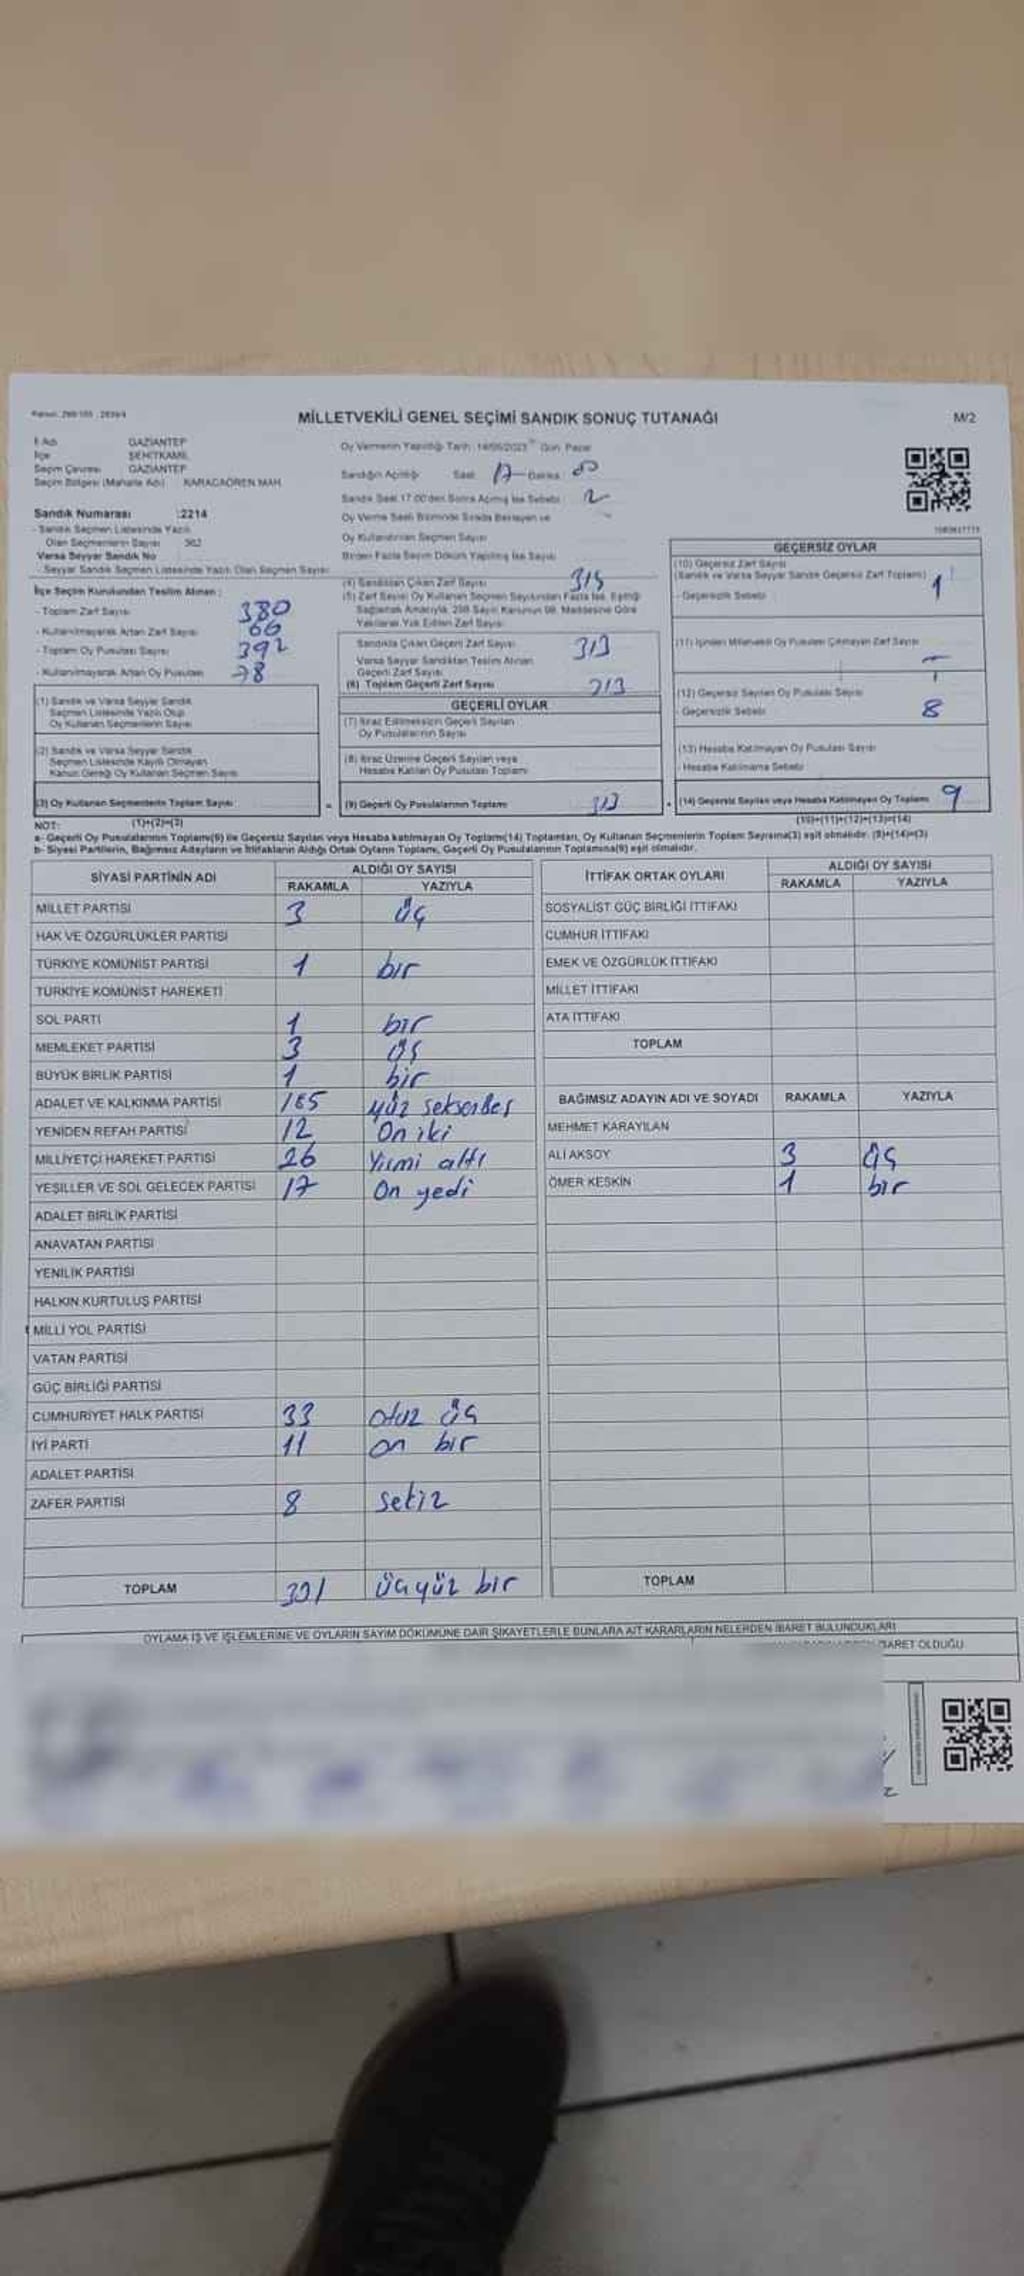 MİLLETVEKİLİ GENEL SEÇİMİ SANDIK SONUÇ TUTANAĞI
M/2
İl Adı GAZİANTEP
İlçe ŞEHİTKAMİL
Seçim Çevresi GAZİANTEP
Seçim Bölgesi (Mahalle Adı) KARACAÖREN MAH.
Sandık Numarası :2214
- Sandık Seçmen Listesinde Yazılı
Olan Seçmenlerin Sayısı 382
Varsa Seyyar Sandık No
- Seyyar Sandık Seçmen Listesinde Yazılı Olan Seçmen Sayısı
İlçe Seçim Kurulundan Teslim Alınan :
- Toplam Zarf Sayısı 380
- Kullanılmayarak Artan Zarf Sayısı 66
- Toplam Oy Pusulası Sayısı 392
- Kullanılmayarak Artan Oy Pusulası 78
(1) Sandık ve Varsa Seyyar Sandık
Seçmen Listesinde Yazılı Olup
Oy Kullanan Seçmenlerin Sayısı
(2) Sandık ve Varsa Seyyar Sandık
Seçmen Listesinde Kayıtlı Olmayan
Kanun Gereği Oy Kullanan Seçmen Sayısı
(3) Oy Kullanan Seçmenlerin Toplam Sayısı
(1)+(2)=(3)
Oy Vermenin Yapıldığı Tarih : 14/05/2023 Gün: Pazar
Sandığın Açıldığı Saat: 17 Dakika:
Sandık Saat 17.00'den Sonra Açılmış İse Sebebi:
Oy Verme Saati Bitiminde Sırada Bekleyen ve
Oy Kullandırılan Seçmen Sayısı
Birden Fazla Sayım Döküm Yapılmış İse Sayısı
(4) Sandıktan Çıkan Zarf Sayısı 315
(5) Zarf Sayısı Oy Kullanan Seçmen Sayısından Fazla İse, Eşitliği
Sağlamak Amacıyla, 298 Sayılı Kanunun 98. Maddesine Göre
Yakılarak Yok Edilen Zarf Sayısı
Sandıkta Çıkan Geçerli Zarf Sayısı 313
Varsa Seyyar Sandıktan Teslim Alınan
Geçerli Zarf Sayısı
(6) Toplam Geçerli Zarf Sayısı 313
GEÇERLİ OYLAR
(7) İtiraz Edilmeksizin Geçerli Sayılan
Oy Pusulalarının Sayısı
(8) İtiraz Üzerine Geçerli Sayılan veya
Hesaba Katılan Oy Pusulası Toplamı
(9) Geçerli Oy Pusulalarının Toplamı
GEÇERSİZ OYLAR
(10) Geçersiz Zarf Sayısı
(Sandık ve Varsa Seyyar Sandık Geçersiz Zarf Toplamı) 1
- Geçersizlik Sebebi
(11) İçinden Milletvekili Oy Pusulası Çıkmayan Zarf Sayısı
(12) Geçersiz Sayılan Oy Pusulası Sayısı
- Geçersizlik Sebebi 8
(13) Hesaba Katılmayan Oy Pusulası Sayısı
- Hesaba Katılmama Sebebi
(14) Geçersiz Sayılan veya Hesaba Katılmayan Oy Toplamı 9
(10)+(11)+(12)+(13)=(14)
NOT:
a- Geçerli Oy Pusulalarının Toplamı(9) ile Geçersiz Sayılan veya Hesaba katılmayan Oy Toplamı(14) Toplamları, Oy Kullanan Seçmenlerin Toplam Sayısına(3) eşit olmalıdır. (9)+(14)=(3)
b- Siyasi Partilerin, Bağımsız Adayların ve İttifakların Aldığı Ortak Oyların Toplamı, Geçerli Oy Pusulalarının Toplamına(9) eşit olmalıdır.
SİYASİ PARTİNİN ADI ALDIĞI OY SAYISI
RAKAMLA YAZIYLA
MİLLET PARTİSİ 3 üç
HAK VE ÖZGÜRLÜKLER PARTİSİ
TÜRKİYE KOMÜNİST PARTİSİ 1 bir
TÜRKİYE KOMÜNİST HAREKETİ
SOL PARTİ 1 bir
MEMLEKET PARTİSİ 3 üç
BÜYÜK BİRLİK PARTİSİ 1 bir
ADALET VE KALKINMA PARTİSİ 185 yüz seksenbeş
YENİDEN REFAH PARTİSİ 12 On iki
MİLLİYETÇİ HAREKET PARTİSİ 26 Yirmi altı
YEŞİLLER VE SOL GELECEK PARTİSİ 17 On yedi
ADALET BİRLİK PARTİSİ
ANAVATAN PARTİSİ
YENİLİK PARTİSİ
HALKIN KURTULUŞ PARTİSİ
MİLLİ YOL PARTİSİ
VATAN PARTİSİ
GÜÇ BİRLİĞİ PARTİSİ
CUMHURİYET HALK PARTİSİ 33 otuz üç
İYİ PARTİ 11 on bir
ADALET PARTİSİ
ZAFER PARTİSİ 8 sekiz
TOPLAM 301 üçyüz bir
İTTİFAK ORTAK OYLARI ALDIĞI OY SAYISI
RAKAMLA YAZIYLA
SOSYALİST GÜÇ BİRLİĞİ İTTİFAKI
CUMHUR İTTİFAKI
EMEK VE ÖZGÜRLÜK İTTİFAKI
MİLLET İTTİFAKI
ATA İTTİFAKI
TOPLAM
BAĞIMSIZ ADAYIN ADI VE SOYADI RAKAMLA YAZIYLA
MEHMET KARAYILAN
ALİ AKSOY 3 üç
ÖMER KESKİN 1 bir
TOPLAM
OYLAMA İŞ VE İŞLEMLERİNE VE OYLARIN SAYIM DÖKÜMÜNE DAİR ŞİKAYETLERLE BUNLARA AİT KARARLARIN NELERDEN İBARET BULUNDUKLARI
İBARET OLDUĞU